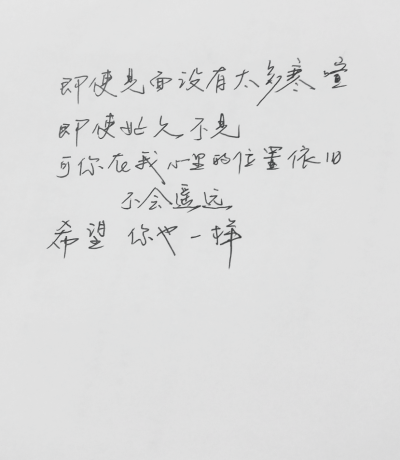 即使见面没有太多寒暄
即使许久不见
可你在我心里的位置依旧
不会遥远
希望 你也一样